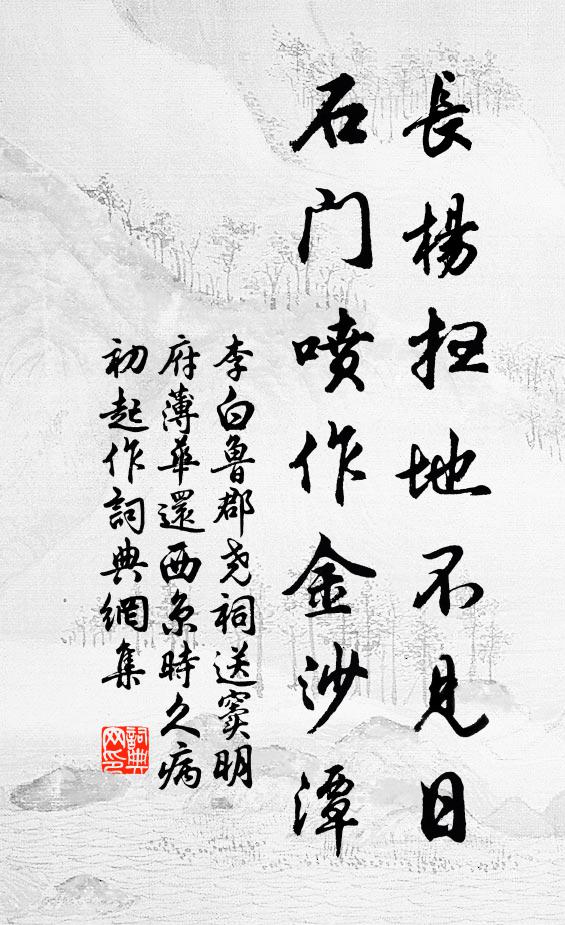 長楊掃地不見日
石門噴作金沙潭
李白魯郡尧祠送窦明
府薄華還西京時久病
初起作詞典網集
詞典网印